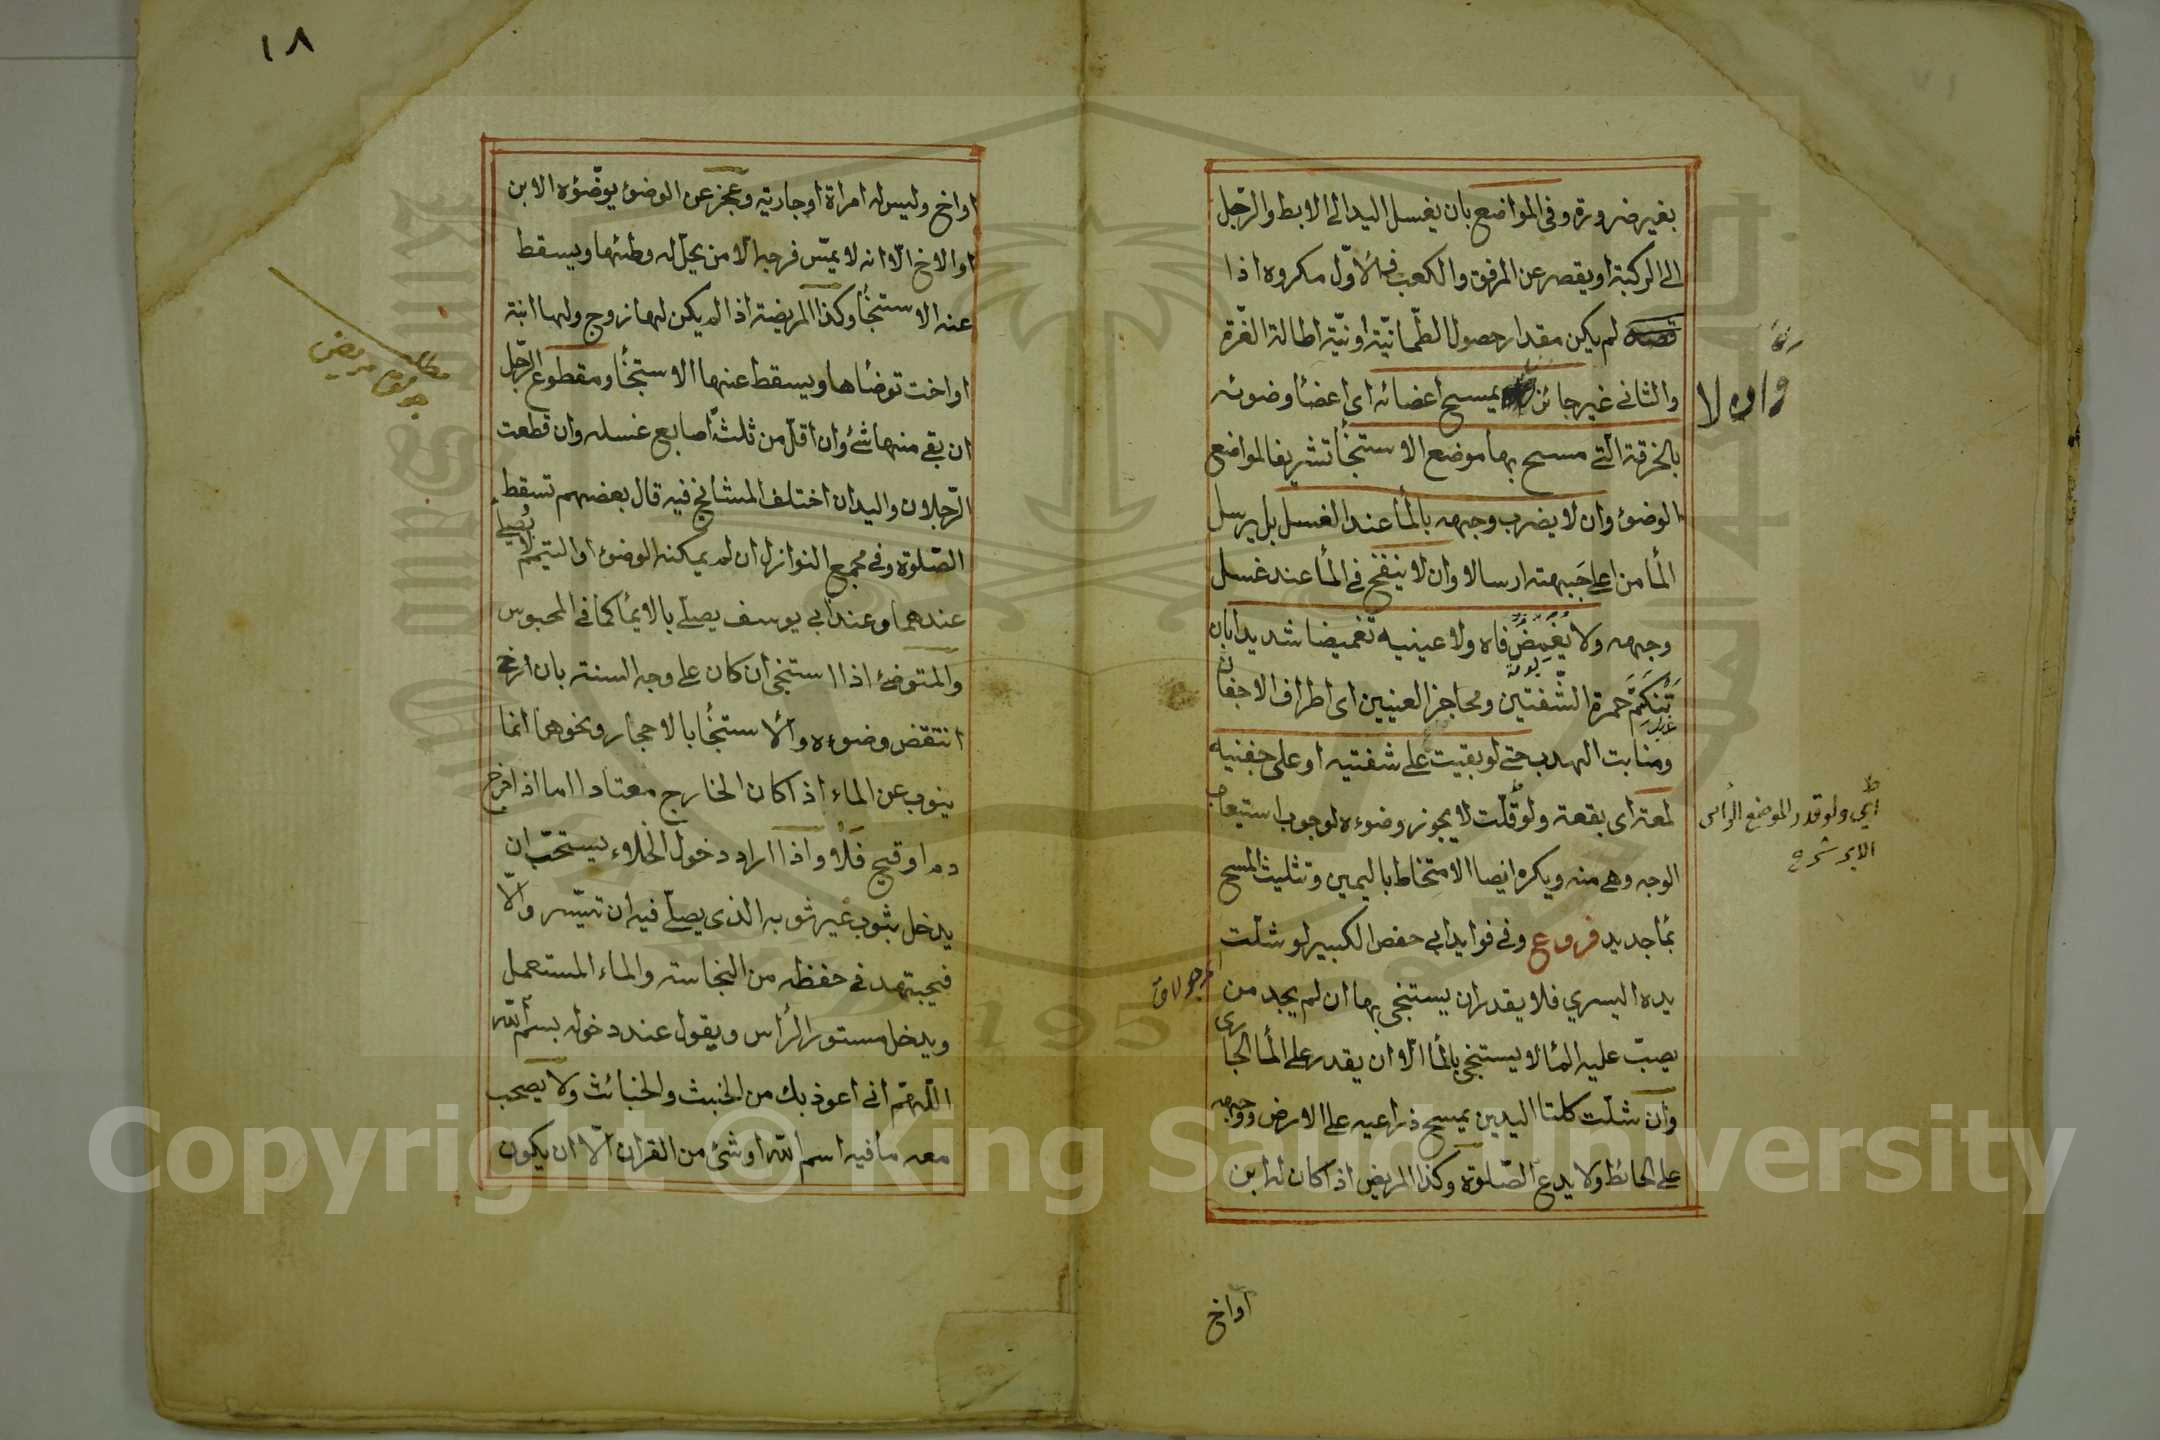 بغير ضرورة وفي المواضع بان يغسل اليد الى الابط والرّجل
الى الركبة او يقصر عن المرفق والكعب فالاوّل مكروه اذا
لم يكن مقدار حصول الطّمانيّة او نيّة اطالة الغّرة
والثاني غير جائز يمسح اعضائه اى اعضأ وضوئه
وان لا
بالخرقة الّتي مسح بها موضع الاستنجأ تشريفا لمواضع
الوضوء وان لا يضرب وجهه بالمأ عند الغسل بل يرسل
المأ من اعلى جَبهته ارسالا وان لا ينفخ في المأ عند غسل
وجهه ولا يُغَمِّضُ فاه ولا عينيه تغميضا شديدا بان
تَنكَتِمَ حمرة الشّفتين ومحاجز العنيين اى اطراف الاجفان
ومنابت الهدب حتى لو بقيت على شفتيه او على جفنيه
لمعة اى بقعة ولو قُلّت لا يجوز وضوءه لوجوب استيعاب
ولو قدر الموضع الرأس
الابر شرح
الوجه وهي منه ويكره ايضا الامتخاط باليمين وتثليث المسح
بمأ جديد فروع وفي فوايد ابي حفص الكبير لو شلّت
يده اليسري فلا يقدر ان يستنجي بها ان لم يجد من
يصبّ عليه المأ لا يستنجى بالمأ الّا ان يقدر على المأ الجارى
وان شلّت كلتا اليدين يمسح ذراعيه على الارض ووجهه
على الحائط ولا يدع الصّلوة وكذا المريض اذا كان له ابن
او اخ
١٨
او اخ وليس له امراة او جارية وعجز عن الوضوء يوضّؤه الابن
او الاخ الّا انه لا يمسّ فرجه الّا من يحلّ له وطئها ويسقط
عنه الاستنجأ وكذا المريضة اذا لم يكن لها زوج ولها ابنة
مريض
او اخت توضأها ويسقط عنها الاستنجأ ومقطوع الرّجل
ان بقي منها شئ وان اقلّ من ثلثة اصابع غسله وان قطعت
الرّجلان واليدان اختلف المشائخ فيه قال بعضهم تسقط
الصّلوة وفي مجمع النوازل ان لم يمكنه الوضوء او التيمم لا يصلّي
عندهما وعند ابي يوسف يصلّي بالايمأ كما في المحبوس
والمتوضئ اذا استنجى ان كان على وجه السنة بان ارخى
انتقض وضوءه والّا والاستنجأ بالاحجار ونحوها انما
ينوب عن الماء اذا كان الخارج معتادا اما اذا خرج
دم او قيح فلا واذا اراد دخول الخلاء يستحب ان
يدخل بثوب غير ثوبه الذي يصلّي فيه ان تيسّر والّا
فيجتهد في حفظه من النجاسة والماء المستعمل
ويدخل مستور الرأس ويقول عند دخوله بسم اللّه
اللّهمّ اني اعوذ بك من الخبث والخبائث ولا يصحب
معه ما فيه اسم اللّه او شئ من القران الّا ان يكون
Copyright © King Saud University
1957